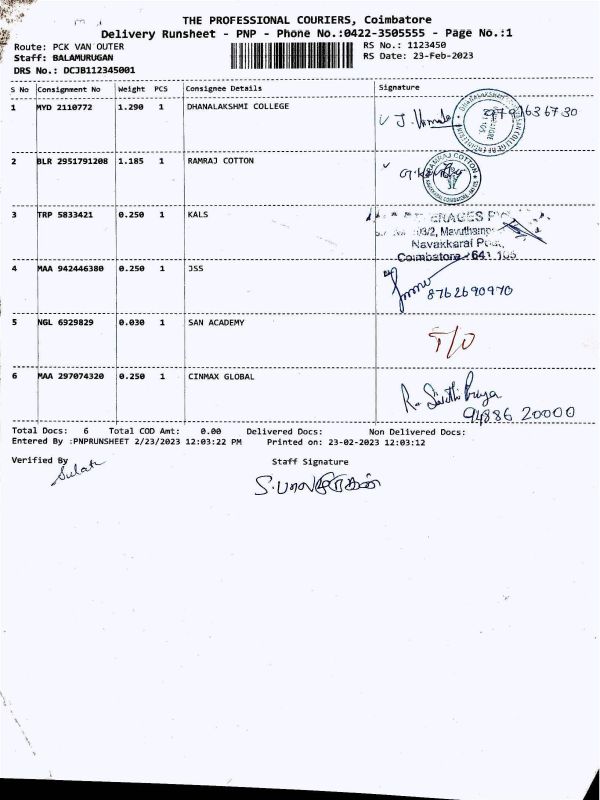 THE PROFESSIONAL COURIERS, Coimbatore
Delivery Runsheet - PNP - Phone No.:0422-3505555 - Page No.:1
Route: PCK VAN OUTER
RS No.: 1123450
Staff: BALAMURUGAN
RS Date: 23-Feb-2023
DRS No.: DCJB112345001
S No Consignment No Weight PCS Consignee Details Signature
1 MYD 2110772 1.290 1 DHANALAKSHMI COLLEGE
2 BLR 2951791208 1.185 1 RAMRAJ COTTON
RAMRAJ COTTON
3 TRP 5833421 0.250 1 KALS
Navakkarai
Coimbatore - 641 105
4 MAA 942446380 0.250 1 JSS
8762690970
5 NGL 6929829 0.030 1 SAN ACADEMY
T/O
6 MAA 297074320 0.250 1 CINMAX GLOBAL
94886 20000
Total Docs: 6 Total COD Amt: 0.00 Delivered Docs: Non Delivered Docs:
Entered By :PNPRUNSHEET 2/23/2023 12:03:22 PM Printed on: 23-02-2023 12:03:12
Verified By Staff Signature